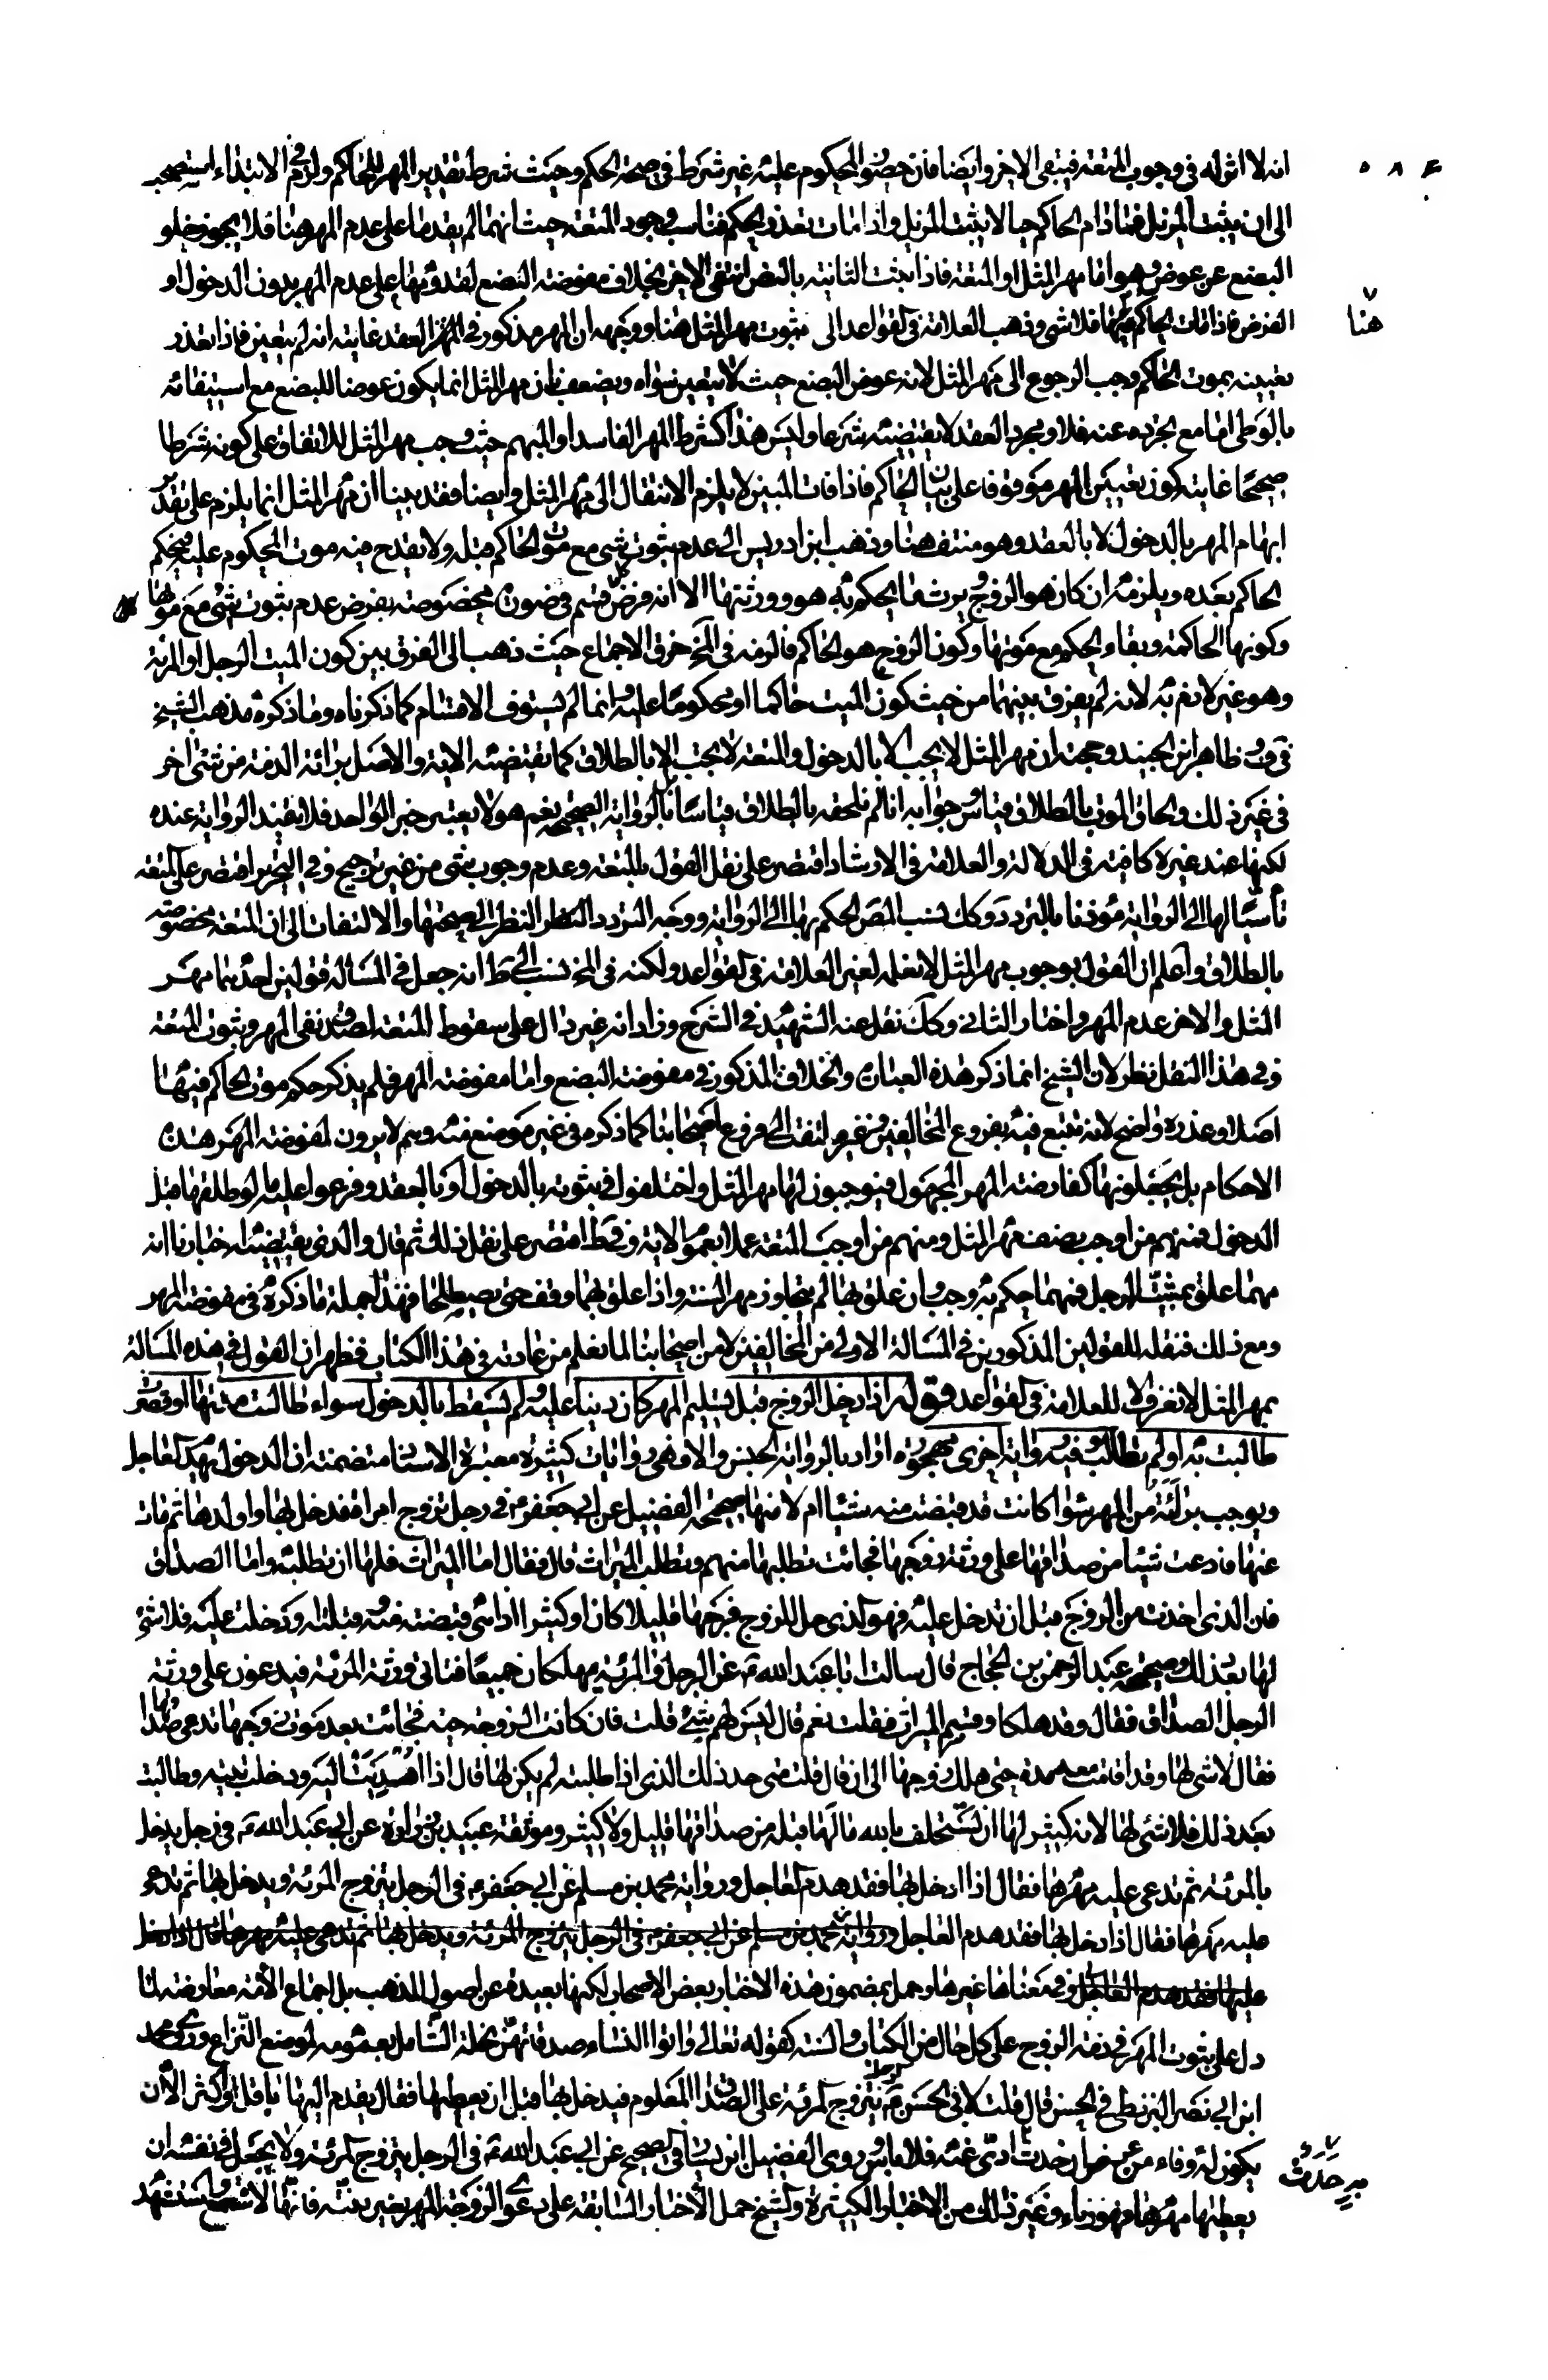 انه لا اثر له فى وجوب المتعة فيبقى الاخر وايضا فان حضور المحكوم عليه غير شرط فى صحة الحكم وحيث شرط تقدير المهر للحاكم ولزم فى الابتداء استصحب
الى ان يثبت المزيل فما دام الحاكم حيا لا يثبت المزيل واذا مات تعذر الحكم فناسب وجود المتعة حيث انهما لم يقدما على عدم المهر هنا فلا يجوز خلو
البضع عن عوض وهو اما مهر المثل او المتعة فاذا ثبت الثانية بالنص انتفى الاخر بخلاف مفوضة البضع لقدومها على عدم المهر بدون الدخول او
الفرض فاذا مات الحاكم فيها فلا شئ وذهب العلامة فى القواعد الى ثبوت مهر المثل هنا ووجهه ان المهر مذكور فى العقد غايته انه لم يتعين فاذا تعذر
تعيينه بموت الحاكم وجب الرجوع الى مهر المثل لانه عوض البضع حيث لا يتعين سواه ويضعف بان مهر المثل انما يكون عوضا للبضع مع استيفائه
بالوطى اما مع تجرده عنه فلا ومجرد العقد لا يقتضيه شرعا وليس هذا كشرط المهر الفاسد او المبهم حيث وجب مهر المثل للاتفاق على كونه شرطا
صحيحا غايته كون تعيين المهر موقوفا على بيان الحاكم فاذا فات المبين لا يلزم الانتقال الى مهر المثل وايضا فقد بينا ان مهر المثل انما يلزم على تقدير
ابهام المهر بالدخول لا بالعقد وهو منتف هنا وذهب ابن ادريس الى عدم ثبوت شئ مع موت الحاكم قبله ولا يقدح فيه موت المحكوم عليه فيحكم
الحاكم بعده ويلزمه ان كان هو الزوج ويرث ما يحكم به هو وورثتها الا انه فرض قسم فى صورة مخصوصة بفرض عدم ثبوت شئ مع موتها
وكونها الحاكمة وبقاء الحكم مع موتها وكون الزوج هو الحاكم فالزمه فى المخ خرق الاجماع حيث ذهب الى الفرق بين كون الميت الرجل او المرئة
وهو غير لازم به لانه لم يفرق بينهما من حيث كون الميت حاكما او محكوما عليه وانما لم يستوف الاقسام كما ذكرناه وما ذكره مذهب الشيخ
فى ف وظاهر ابن الجنيد وحجته ان مهر المثل لا يجب الا بالدخول والمتعة لا تجب الا بالطلاق كما تقتضيه الاية والاصل برائة الذمة من شئ اخر
فى غير ذلك والحاق الموت بالطلاق قياس وجوابه انا لم نلحقه بالطلاق قياسا بل بالرواية الصحيحة نعم هو لا يعتبر خبر الواحد فلا تفيد الرواية عنده
لكنها عند غيره كافية فى الدلالة والعلامة فى الارشاد اقتصر على نقل القول بالمتعة وعدم وجوب شئ من غير ترجيح وفى التحرير اقتصر على المتعة
ناسبا لها الى الرواية مؤذنا بالتردد وكك نسب المص الحكم بها الى الرواية ووجه التردد النظر الى صحتها والالتفات الى ان المتعة مخصوصة
بالطلاق واعلم ان القول بوجوب مهر المثل لا نعلمه لغير العلامة فى القواعد ولكنه فى المخ نسب الى ط انه جعل فى المسألة قولين احدهما مهر
المثل والاخر عدم المهر واختار الثانى وكك نقل عنه الشهيد فى الشرح وزاد انه غير دال على سقوط المتعة لصدق نفى المهر وثبوت المتعة
وفى هذا النقل نظر لان الشيخ انما ذكر هذه العبارة والخلاف المذكور فى مفوضة البضع واما مفوضة المهر فلم يذكر حكم موت الحاكم فيها
اصلا وعذره واضح لانه تتبع فيه فروع المخالفين وغير ملتفت الى فروع اصحابنا كما ذكره فى غير موضع منه وهم لا يرون لمفوضة المهر هذه
الاحكام بل يجعلونها كفارضة المهر المجهول فيوجبون لها مهر المثل واختلفوا فى ثبوته بالدخول او بالعقد وفرعوا عليه ما لو طلقها قبل
الدخول فمنهم من اوجب نصف مهر المثل ومنهم من اوجب المتعة عملا بعموم الاية وفى ط اقتصر على نقل ذلك ثم قال والذى يقتضيه اخبارنا انه
مهما علق بمشية الرجل فمهما حكم به وجب وان علق بها لم يتجاوز مهر السنة واذا علق بهما وقف حتى يصطلحا فهذا جملة ما ذكره فى مفوضة المهر
ومع ذلك فنقله للقولين المذكورين فى المسالة الاولى من المخالفين لا من اصحابنا لما نعلم من عادته فى هذا الكتاب فظهر ان القول فى هذه المسالة
بمهر المثل لا نعرفه الا للعلامة فى القواعد قوله اذا دخل الزوج قبل تسليم المهر كان دينا عليه ولم يسقط بالدخول سواء طالت مدتها او قصرت
طالبت به او لم تطالب وفيه رواية اخرى مهجورة اراد بالرواية الجنس والا فهى روايات كثيرة معتبرة الاسناد متضمنة ان الدخول يهدم العاجل
ويوجب برائته من المهر سواء كانت قد قبضت منه شيئا ام لا منها صحيحة الفضيل عن ابى جعفر ع فى رجل تزوج امراة فدخل بها واولدها ثم مات
عنها فادعت شيئا من صداقها على ورثة زوجها فجائت تطلبها منهم وتطلب الميراث قال فقال اما الميراث فلها ان تطلبه واما الصداق
فان الذى اخذت من الزوج قبل ان تدخل عليه فهو الذى حل للزوج فرجها قليلا كان او كثيرا اذا هى قبضته منه وقبلته ودخلت عليه فلا شئ
لها بعد ذلك وصحيحة عبد الرحمن بن الحجاج قال سالت ابا عبد الله ع عن الرجل والمرئة يهلكان جميعا فتاتى ورثة المرئة فيدعون على ورثة
الرجل الصداق فقال وقد هلكا وقسم الميراث فقلت نعم قال ليس لهم شئ قلت فان كانت الزوجة حية فجائت بعد موت زوجها تدعى صداقها
فقال لا شئ لها وقد اقامت معه مدة حتى هلك زوجها الى ان قال قلت متى حد ذلك الذى اذا طلبته لم يكن لها قال اذا اهديت اليه ودخلت بيته وطالبت
بعد ذلك فلا شئ لها لانه كثير لها ان تستحلف بالله ما لها قبله من صداقها قليل ولا كثير وموثقة عبيد بن زرارة عن ابى عبد الله ع فى رجل يدخل
بالمرئة ثم تدعى عليه مهرها فقال اذا دخل بها فقد هدم العاجل ورواية محمد بن مسلم عن ابى جعفر ع فى الرجل يتزوج المرئة ويدخل بها ثم تدعى
عليه مهرها فقال اذا دخل بها فقد هدم العاجل ورواية محمد بن مسلم عن ابى جعفر ع فى الرجل يتزوج المرئة ويدخل بها ثم تدعى عليه مهرها قال اذا دخل
عليها فقد هدم العاجل وفى معناها غيرها وعمل بمضمون هذه الاخبار بعض الاصحاب لكنها بعيدة عن اصول المذهب بل اجماع الامة معارضة لما
دل على ثبوت المهر فى ذمة الزوج على كل حال من الكتاب والسنة كقوله تعالى واتوا النساء صدقاتهن نحلة الشامل بعمومه لموضع النزاع وروى محمد
ابن ابى نصر البزنطى فى الحسن قال قلت لابى الحسن ع يتزوج المرئة على الصداق المعلوم فيدخل بها قبل ان يعطيها فقال يقدم اليها ما قل او كثر الا ان
يكون له وفاء من عرض ان حدث به حدث ادى عنه فلا باس وروى الفضيل ابن يسار فى الصحيح عن ابى عبد الله ع فى الرجل يتزوج المرئة ولا يجعل فى نفسه ان
يعطيها مهرها فهو زناء وغير ذلك من الاخبار الكثيرة والشيخ حمل الاخبار السابقة على دعوى الزوجة المهر بغير بينة فانها لا تسمع واستشهد
هنا
به حدث